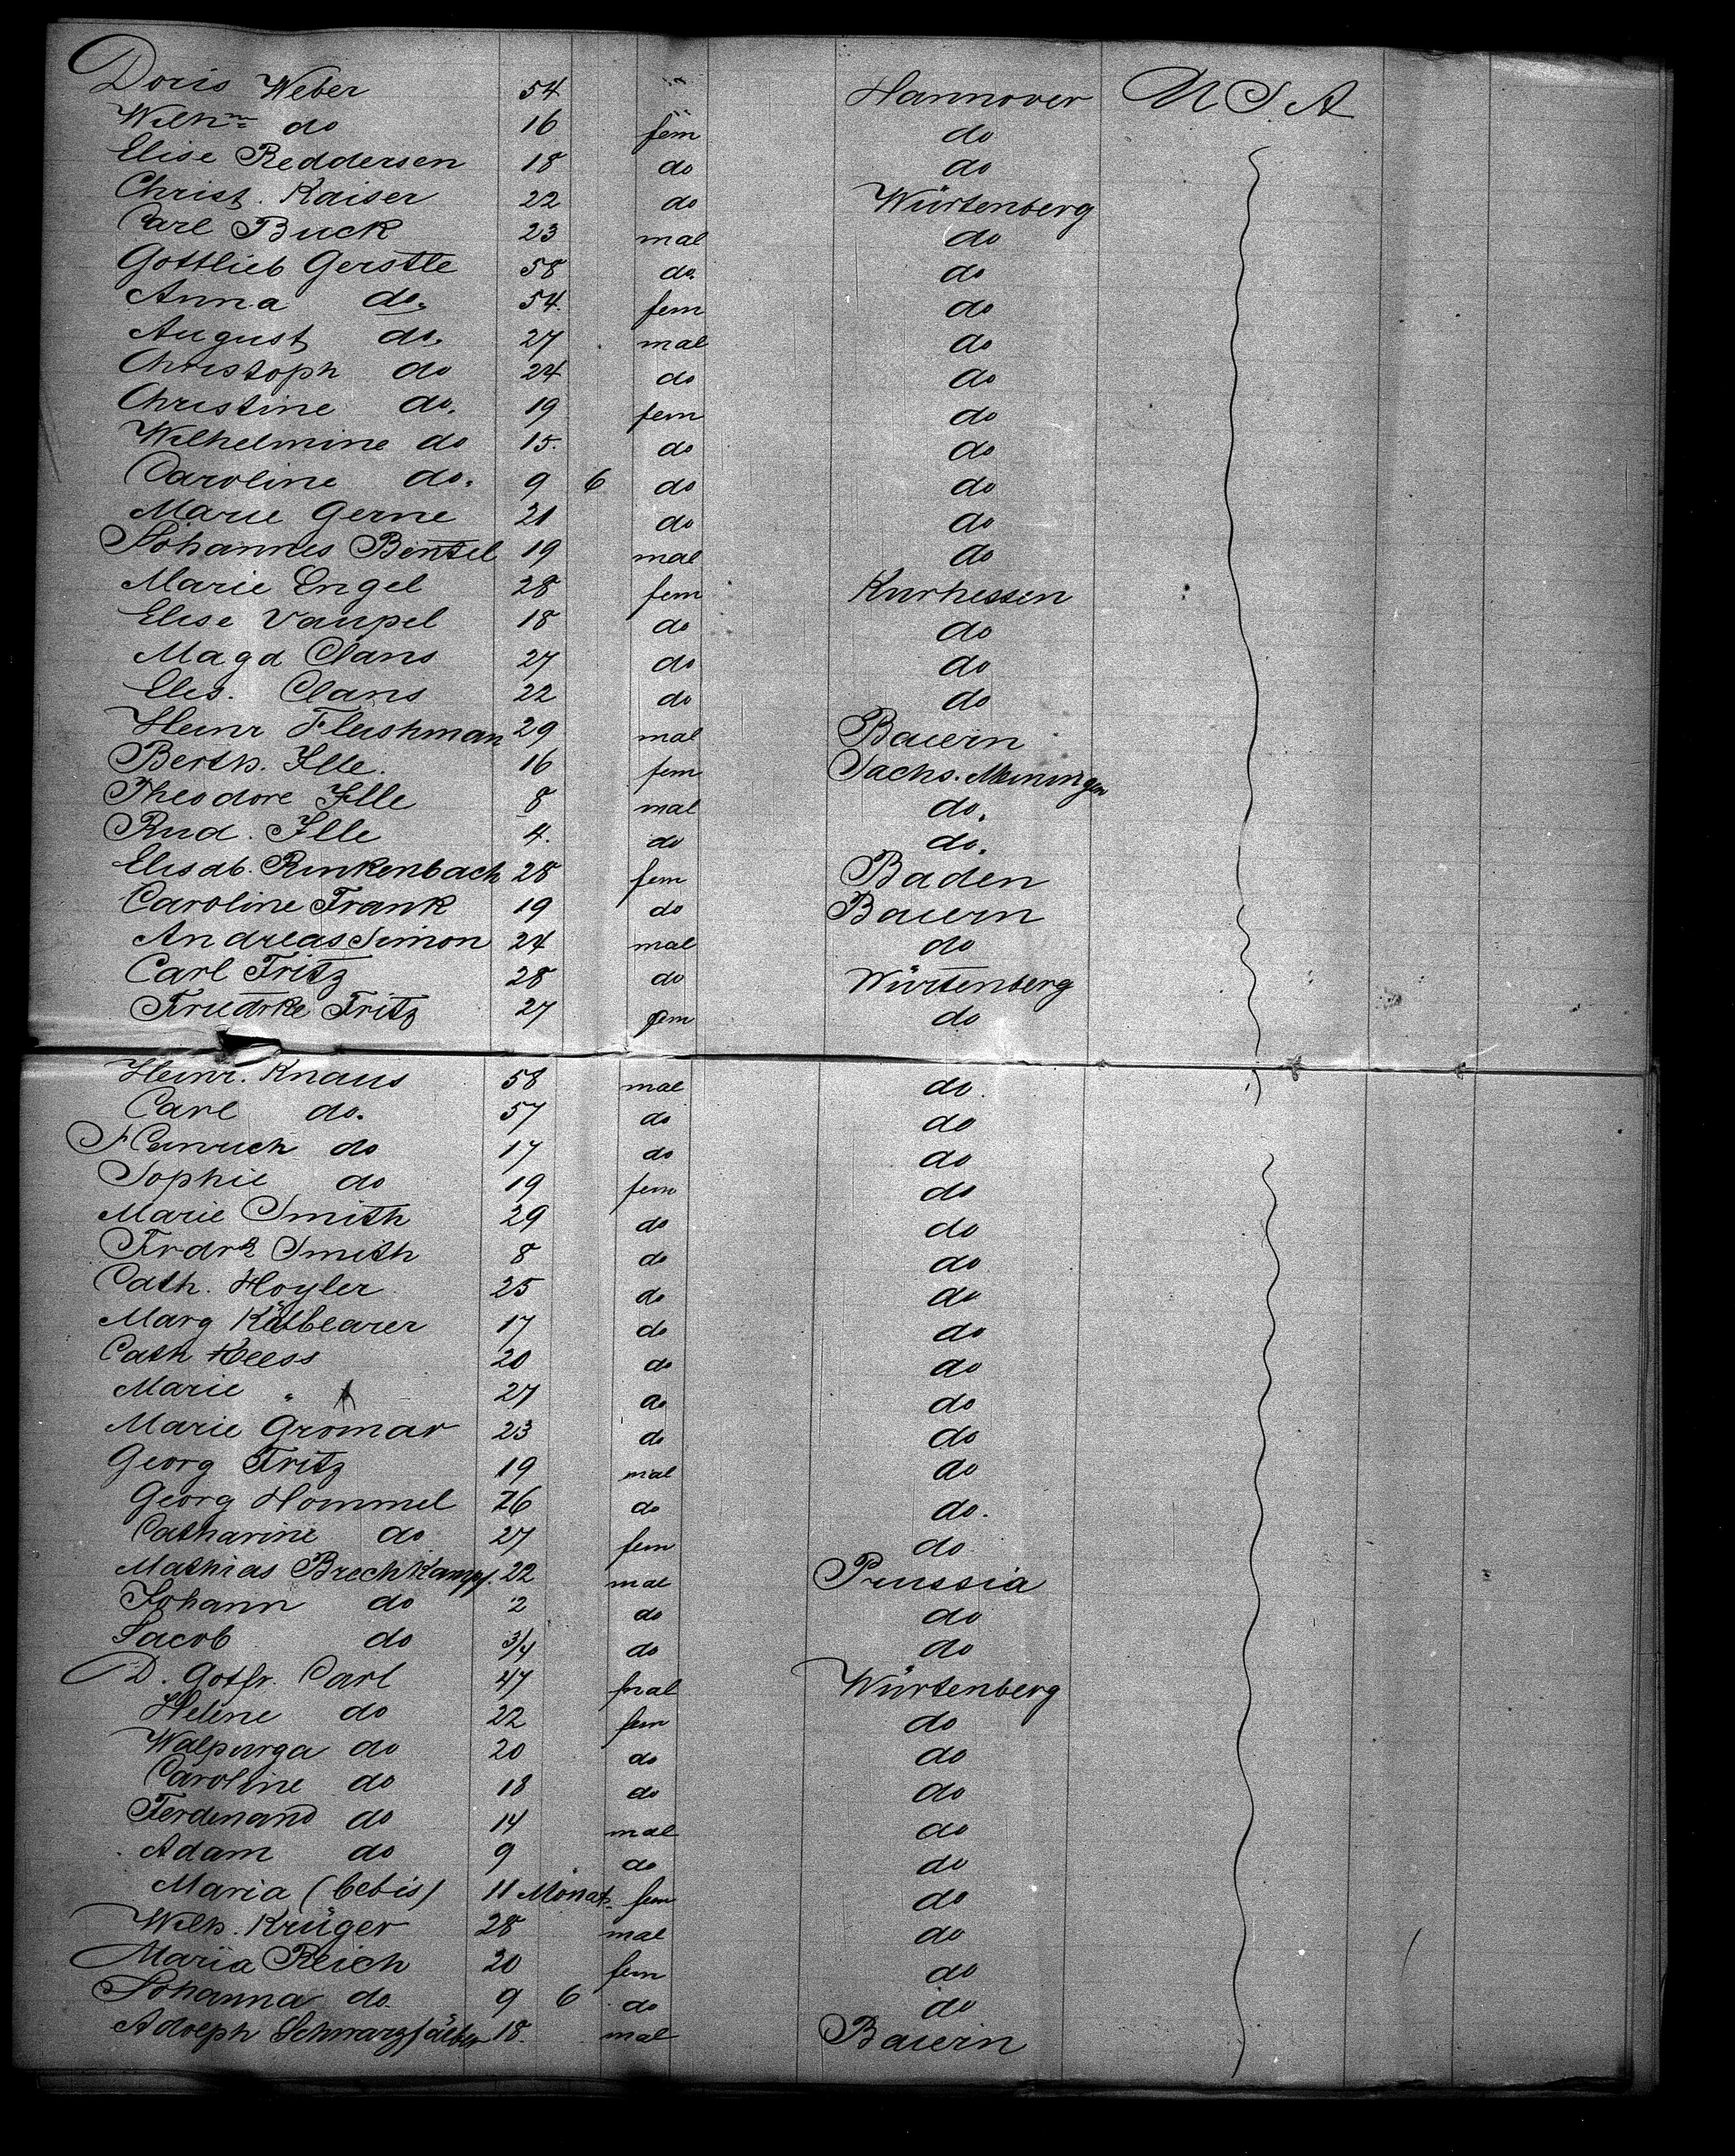 Doris Weber 54 " Hannover U.S.A
Wilhm do 16 fem do
Elise Reddersen 18 do do
Christ. Kaiser 22 do Würtenberg
Carl Buck 23 mal do
Gottlieb Gerstle 58 do. do
Anna do. 54. fem do
August do. 27 mal do
Christoph do 24 do do
Christine do. 19 fem do
Wilhelmine do 15. do do
Caroline do. 9 6 do do
Marie Gerne 21 do do
Johannes Bentel 19 mal do
Marie Engel 28 fem Kurhessen
Elise Vaupel 18 do do
Magd Clans 27 do do
Elis. Clans 22 do do
Heinr Fleishman 29 mal Baiern
Berth. Ille. 16 fem Sachs. Meiningen
Theodore Ille 8 mal do.
Rud. Ille 4. do do.
Elisab. Rinkenbach 28 fem Baden
Caroline Frank 19 do Baiern
Andreas Simon 24 mal do
Carl Fritz 28 do Würtenberg
Friedrke Fritz 27 fem do
Heinr. Knaus 58 mal do.
Carl do. 57 do do
Heinrich do 17 do do
Sophie do 19 fem do
Marie Smith 29 do do
Frdrk Smith 8 do do
Cath. Hoyler 25 do do
Marg 17 do do
Cath Heess 20 do do
Marie " 27 do do
Marie Gromar 23 do do
Georg Fritz 19 mal do
Georg Hommel 26 do do.
Catharine do 27 fem do
Mathias Brechkampf. 22 mal Prussia
Johann do 2 do do
Jacob do 3/4 do do
D. Gotfr. Carl 47 mal Würtenberg
Helene do 22 fem do
Walpurga do 20 do do
Caroline do 18 do do
Ferdinand do 14 mal do
Adam do 9 do do
Maria (bebis) 11 Monat. fem do
Wilh. Krüger 28 mal do
Maria Reich 20 fem do
Johanna do 9 6 do do
Adolph Schwarzfärber 18. mal Baiern